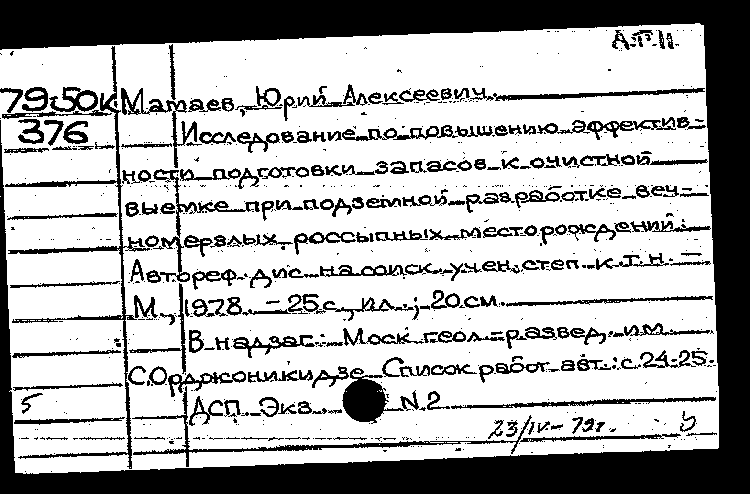 А.Г.П.
79:50к Матаев, Юрий Алексеевич.
376 Исследование по повышению эффектив-
ности подготовки запасов к очистной
выемке при подземной разработке веч-
номерзлых россыпных месторождений:
Автореф. дис. на соиск. учен. степ. к.т.н. –
М., 1978. – 25 с., ил.; 20 см.
В надзаг.: Моск. геол.-развед. им.
С. Орджоникидзе. Список работ авт.: с. 24-25.
5 ДСП. Экз. N. 2
23/IV – 79г.